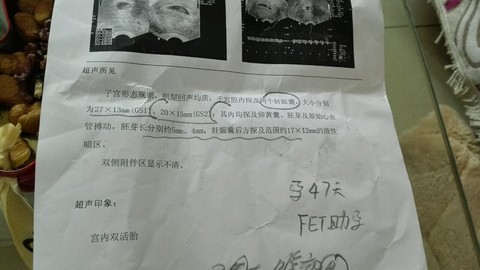 超声所见
子宫形态规则，肌层回声均质，子宫腔内探及两个妊娠囊，大小分别
为27×13mm(GS1)、20×15mm(GS2)，其内均探及卵黄囊、胚芽及原始心血
管搏动，胚芽长分别约5mm、4mm，妊娠囊后方探及范围约17×12mm的液性
暗区。
双侧附件区显示不清。
孕47天
超声印象：
FET助孕
宫内双活胎